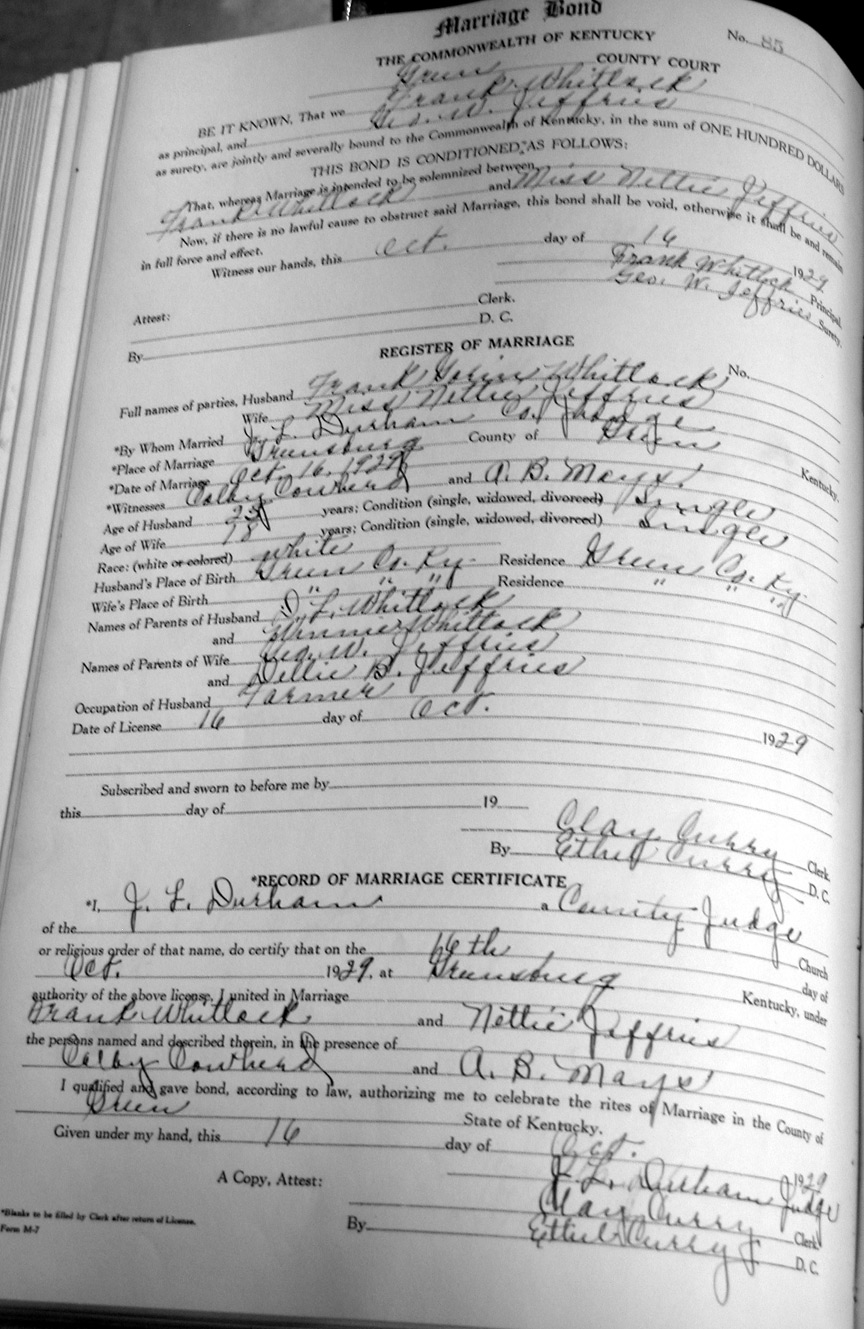 Marriage Bond
No. 85
THE COMMONWEALTH OF KENTUCKY
Green COUNTY COURT
BE IT KNOWN, That we Frank Whitlock
as principal, and Geo. W. Jeffries
as surety, are jointly and severally bound to the Commonwealth of Kentucky, in the sum of ONE HUNDRED DOLLARS
THIS BOND IS CONDITIONED AS FOLLOWS:
That, whereas Marriage is intended to be solemnized between
Frank Whitlock and Miss Nettie Jeffries
Now, if there is no lawful cause to obstruct said Marriage, this bond shall be void, otherwise it shall be and remain
in full force and effect.
Witness our hands, this Oct. day of 16 1929
Frank Whitlock Principal.
Geo. W. Jeffries Surety.
Attest: Clerk.
By D. C.
REGISTER OF MARRIAGE
No.
Full names of parties, Husband Frank Whitlock
Wife Miss Nettie Jeffries
*By Whom Married J. L. Durham Co. Judge
*Place of Marriage Greensburg County of Green Kentucky.
*Date of Marriage Oct. 16, 1929
*Witnesses Colby Cowherd and A. B. Mays
Age of Husband years; Condition (single, widowed, divorced) Single
Age of Wife 18 years; Condition (single, widowed, divorced) Single
Race: (white or colored) white
Husband's Place of Birth Green Co. Ky. Residence Green Co. Ky
Wife's Place of Birth " " " Residence " " "
Names of Parents of Husband L. Whitlock
and Whitlock
Names of Parents of Wife Geo. W. Jeffries
and B. Jeffries
Occupation of Husband Farmer
Date of License 16 day of Oct. 1929
Subscribed and sworn to before me by
this day of 19
Clay Curry Clerk
By Ethel Curry D. C.
*RECORD OF MARRIAGE CERTIFICATE
*I, J. L. Durham a County Judge
of the Church
or religious order of that name, do certify that on the 16th day of
Oct. 1929, at Greensburg Kentucky, under
authority of the above license, I united in Marriage
Frank Whitlock and Nettie Jeffries
the persons named and described therein, in the presence of
Colby Cowherd and A. B. Mays
I qualified and gave bond, according to law, authorizing me to celebrate the rites of Marriage in the County of
Green State of Kentucky.
Given under my hand, this 16 day of Oct. 1929
J. L. Durham Judge
A Copy, Attest: Clay Curry Clerk
By Ethel Curry D. C.
*Blanks to be filled by Clerk after return of License.
Form M-7